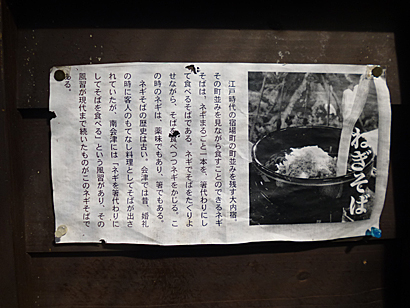 ねぎそば
江戸時代の宿場町の町並みを残す大内宿。
その町並みを見ながら食すことのできるネギ
そばは、ネギまるごと一本を、箸代わりにし
て食べるそばである。ネギでそばをたくりよ
せながら、そばを食べつつネギをかじる。こ
の時のネギは、薬味でもあり、箸でもある。
ネギそばの歴史は古い。会津では昔、婚礼
の時に客人のもてなし料理としてそばが出さ
れていたが、南会津には「ネギを箸代わりに
してそばを食べる」という風習があり、その
風習が現代まで続いたものがこのネギそばで
ある。